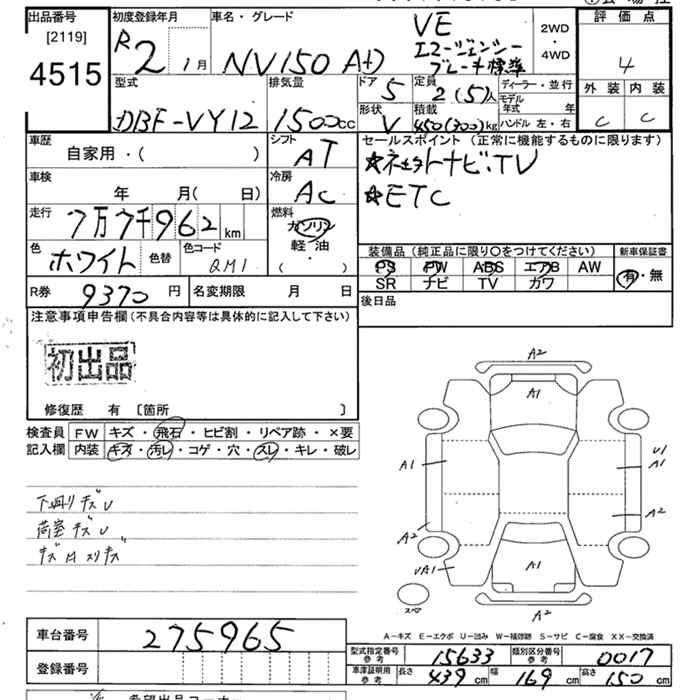 出品番号
[2119]
4515
初度登録年月
R2 1月
車名・グレード
NV150 AD
VE
エマージェンシー
ブレーキ標準
2WD
・
4WD
評価点
4
外装 内装
C C
型式
DBF-VY12
排気量
1500cc
ドア 5
定員 2(5)人
ディーラー・並行
モデル年式 年
形状 V
積載 450(300)kg
ハンドル 左・右
車歴
自家用・( )
シフト
AT
セールスポイント (正常に機能するものに限ります)
☆ネットナビ・TV
☆ETC
車検
年 月( 日)
冷房
AC
走行 7万7千962km
燃料
ガソリン
軽油
( )
色 ホワイト
色替
色コード QM1
装備品 (純正品に限り○をつけてください)
新車保証書
PS PW ABS エアB AW
SR ナビ TV カワ
有・無
R券 9370円
名変期限 月 日
後日品
注意事項申告欄(不具合内容等は具体的に記入して下さい)
初出品
修復歴 有 〔箇所 〕
検査員記入欄
FW キズ・飛石・ヒビ割・リペア跡・×要
内装 キズ・汚レ・コゲ・穴・スレ・キレ・破レ
下廻りキズU
荷室キズU
キズ内スリキズ
A2
A1
A1
U1
A1
A2
A2
UA1
A1
A2
スペア
A-キズ E-エクボ U-凹み W-補修跡 S-サビ C-腐食 XX-交換済
車台番号 275965
登録番号
型式指定番号 参考 15633
類別区分番号 参考 0017
車庫証明用 参考 長さ 439cm 幅 169cm 高さ 150cm
希望出品コーナー